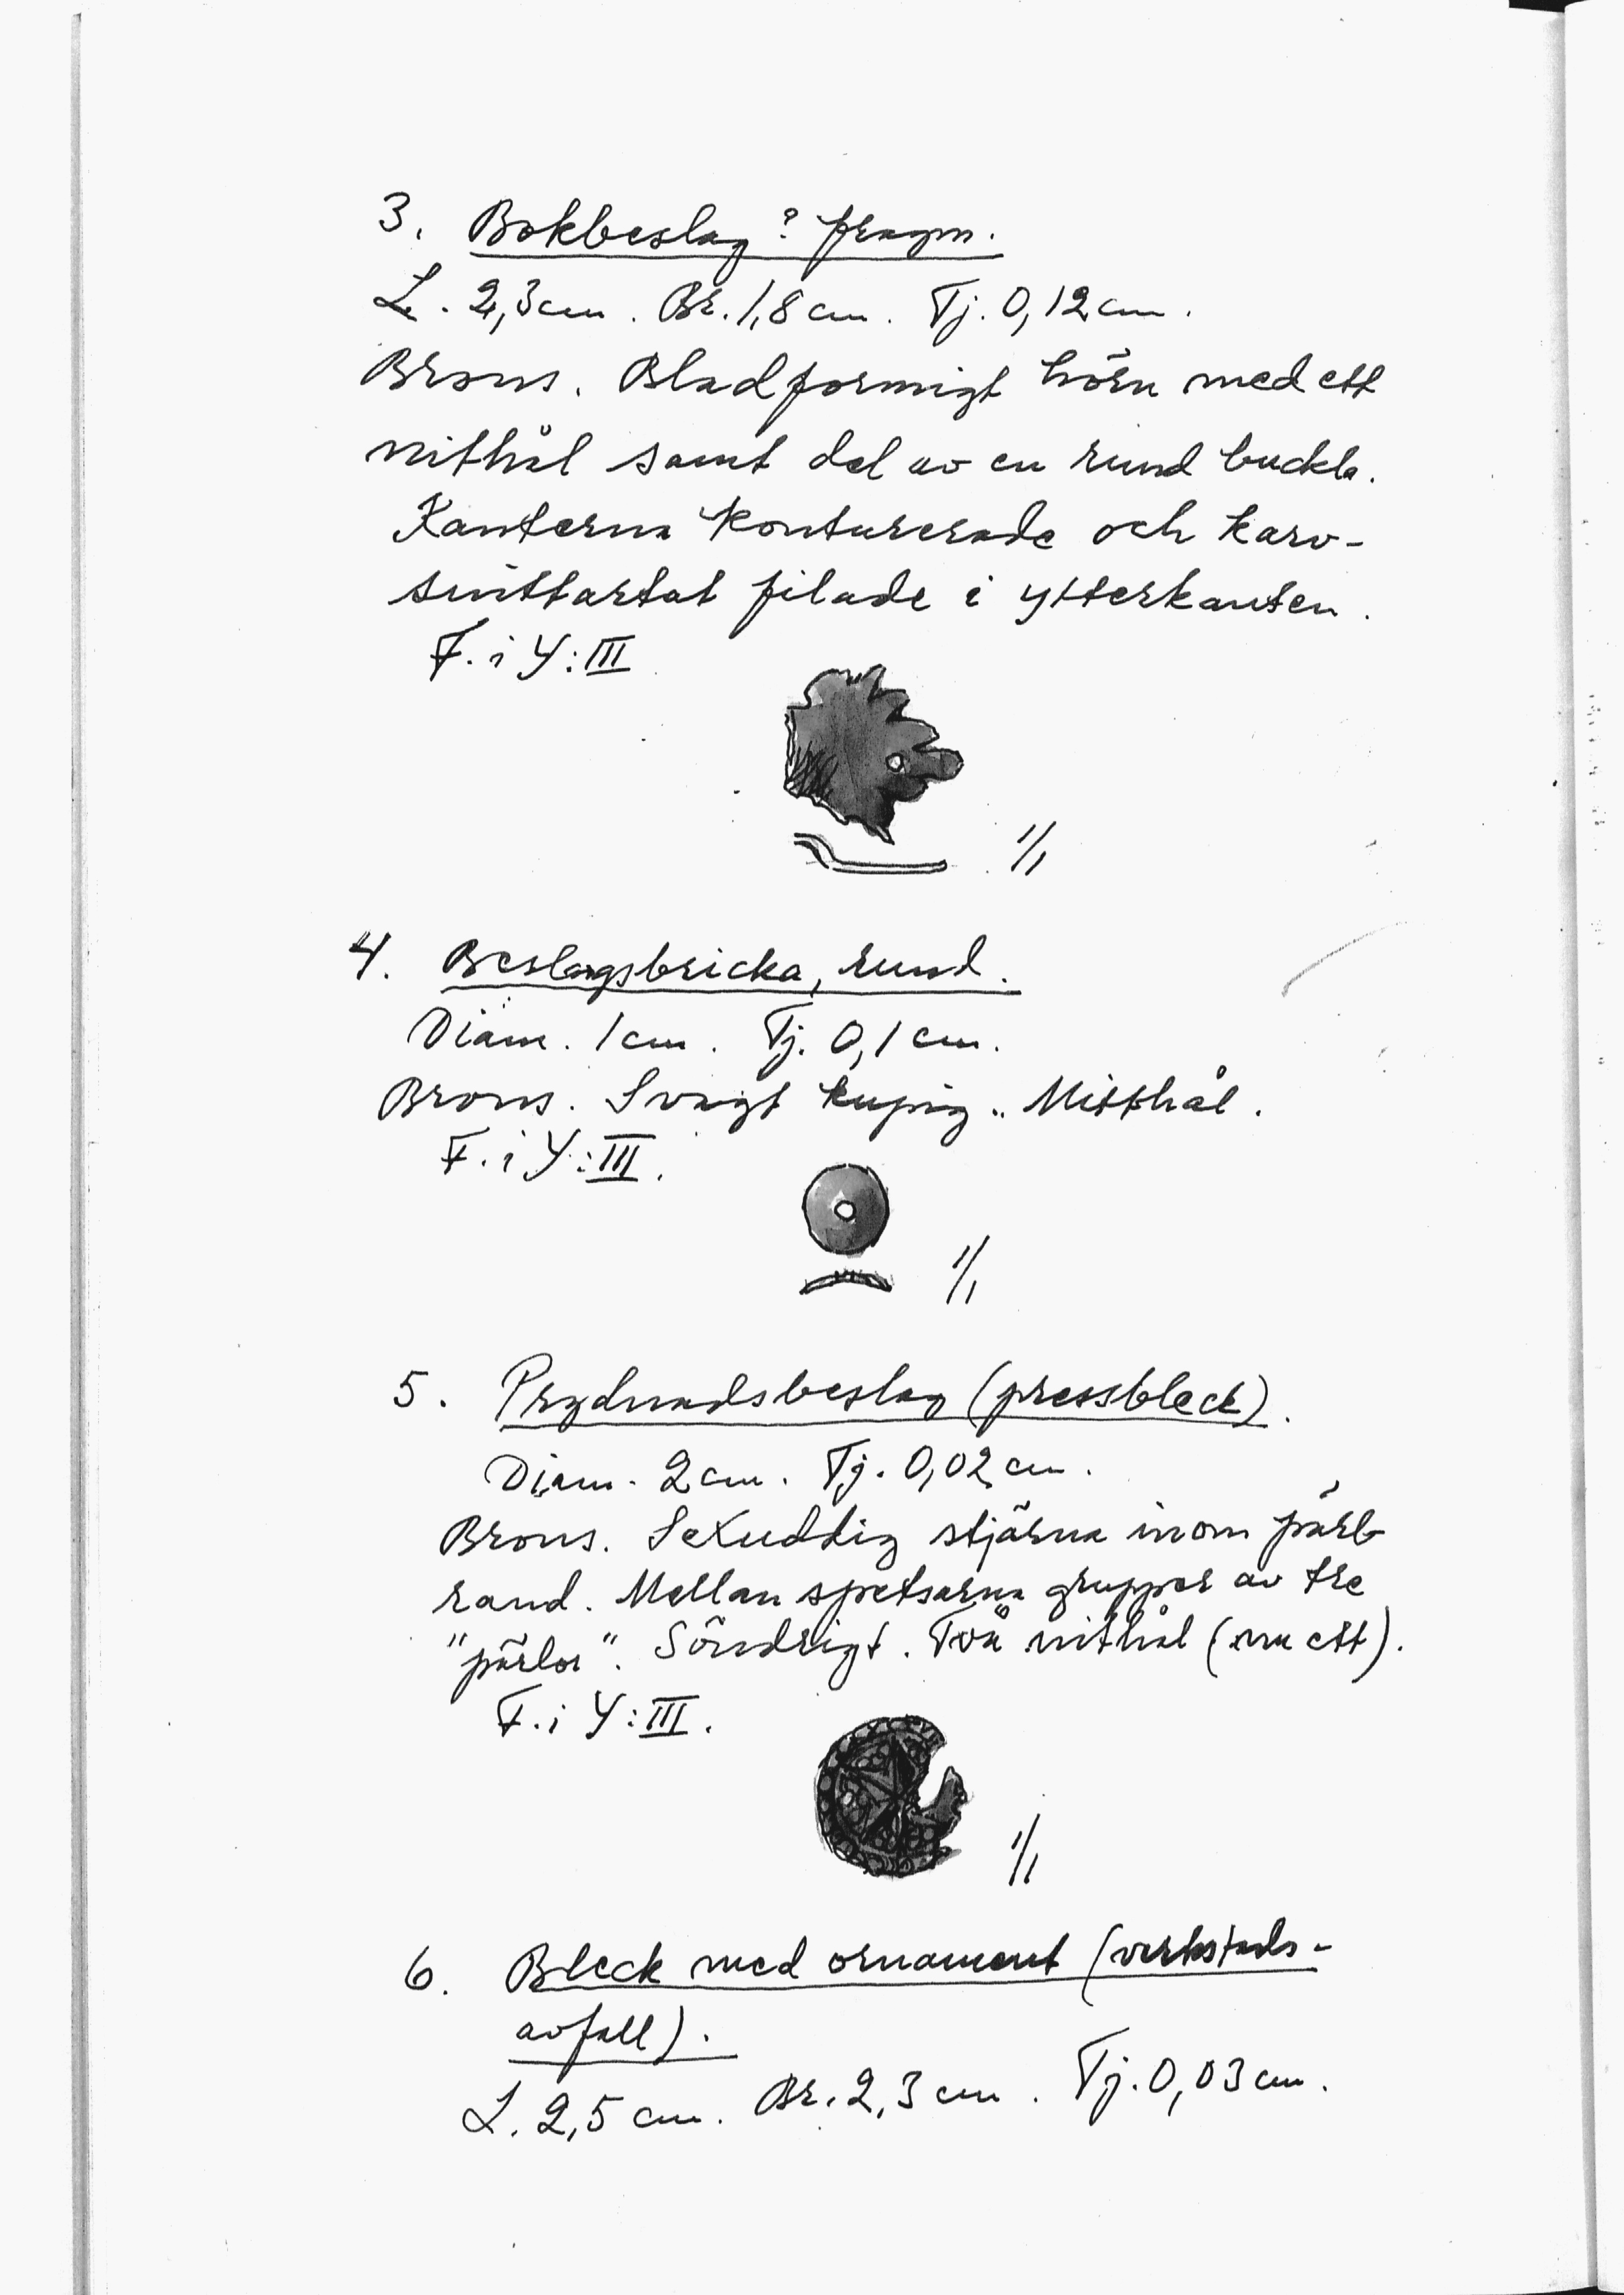 3. Bokbeslag? fragm.
L. 2,3 cm. Br. 1,8 cm. Tj. 0,12 cm.
Brons. Bladformigt hörn med ett
nithål samt del av en rund buckla.
Kanterna konturerade och karv-
snittartat filade i ytterkanten.
F. i Y:III
1/1
4. Beslagsbricka, rund.
Diam. 1 cm. Tj. 0,1 cm.
Brons. Svagt kupig. Mitthål.
F. i Y:III.
1/1
5. Prydnadsbeslag (pressbleck).
Diam. 2 cm. Tj. 0,02 cm.
Brons. Sexuddig stjärna inom pärl-
rand. Mellan spetsarna grupper av tre
"pärlor". Söndrigt. Två nithål (nu ett).
F. i Y:III.
1/1
6. Bleck med ornament (verkstads-
avfall).
L. 2,5 cm. Br. 2,3 cm. Tj. 0,03 cm.